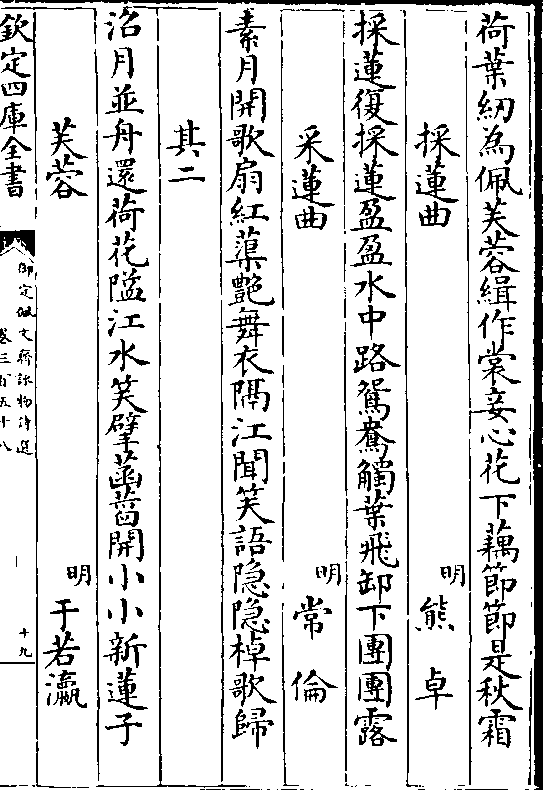 荷葉紉為佩芙蓉緝作裳妾心花下藕節節是秋霜
採蓮曲 明 熊卓
採蓮復採蓮盈盈水中路鴛鴦觸葉飛卸下團團露
采蓮曲 明 常倫
素月開歌扇紅蕖艷舞衣隔江聞笑語隐隐棹歌歸
其二
沿月並舟還荷花隘江水笑擘菡萏開小小新蓮子
芙蓉 明 于若瀛
欽定四庫全書
御定佩文齋詠物詩選
卷三百五十八
十九